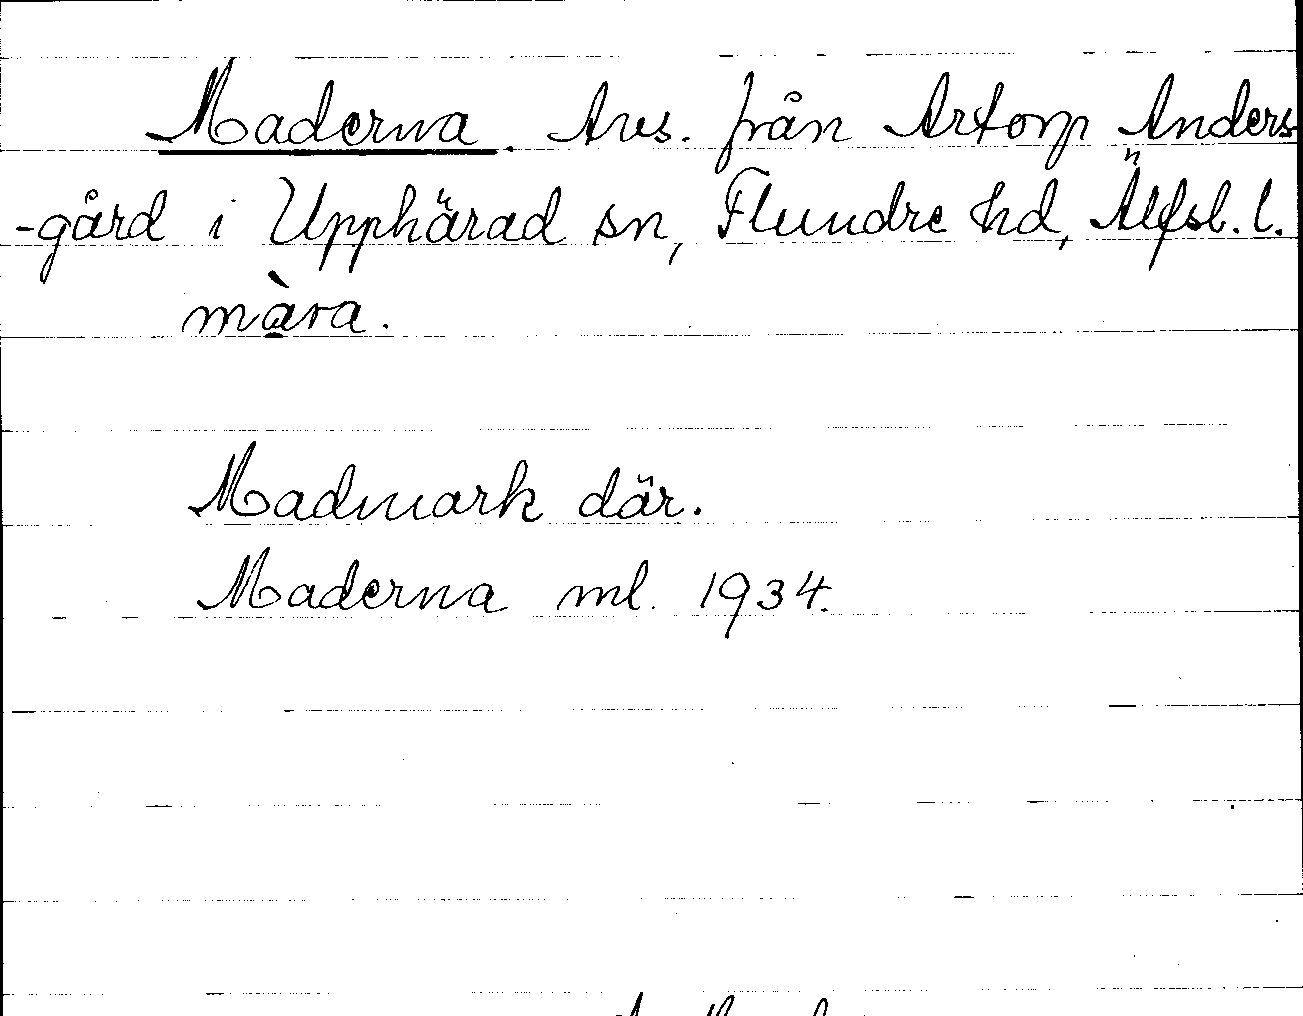 Maderna. Avs. från Artorp Anders
-gård i Upphärad sn, Flundre hd, Älfsb. l.
màra.
Madmark där.
Maderna ml. 1934.